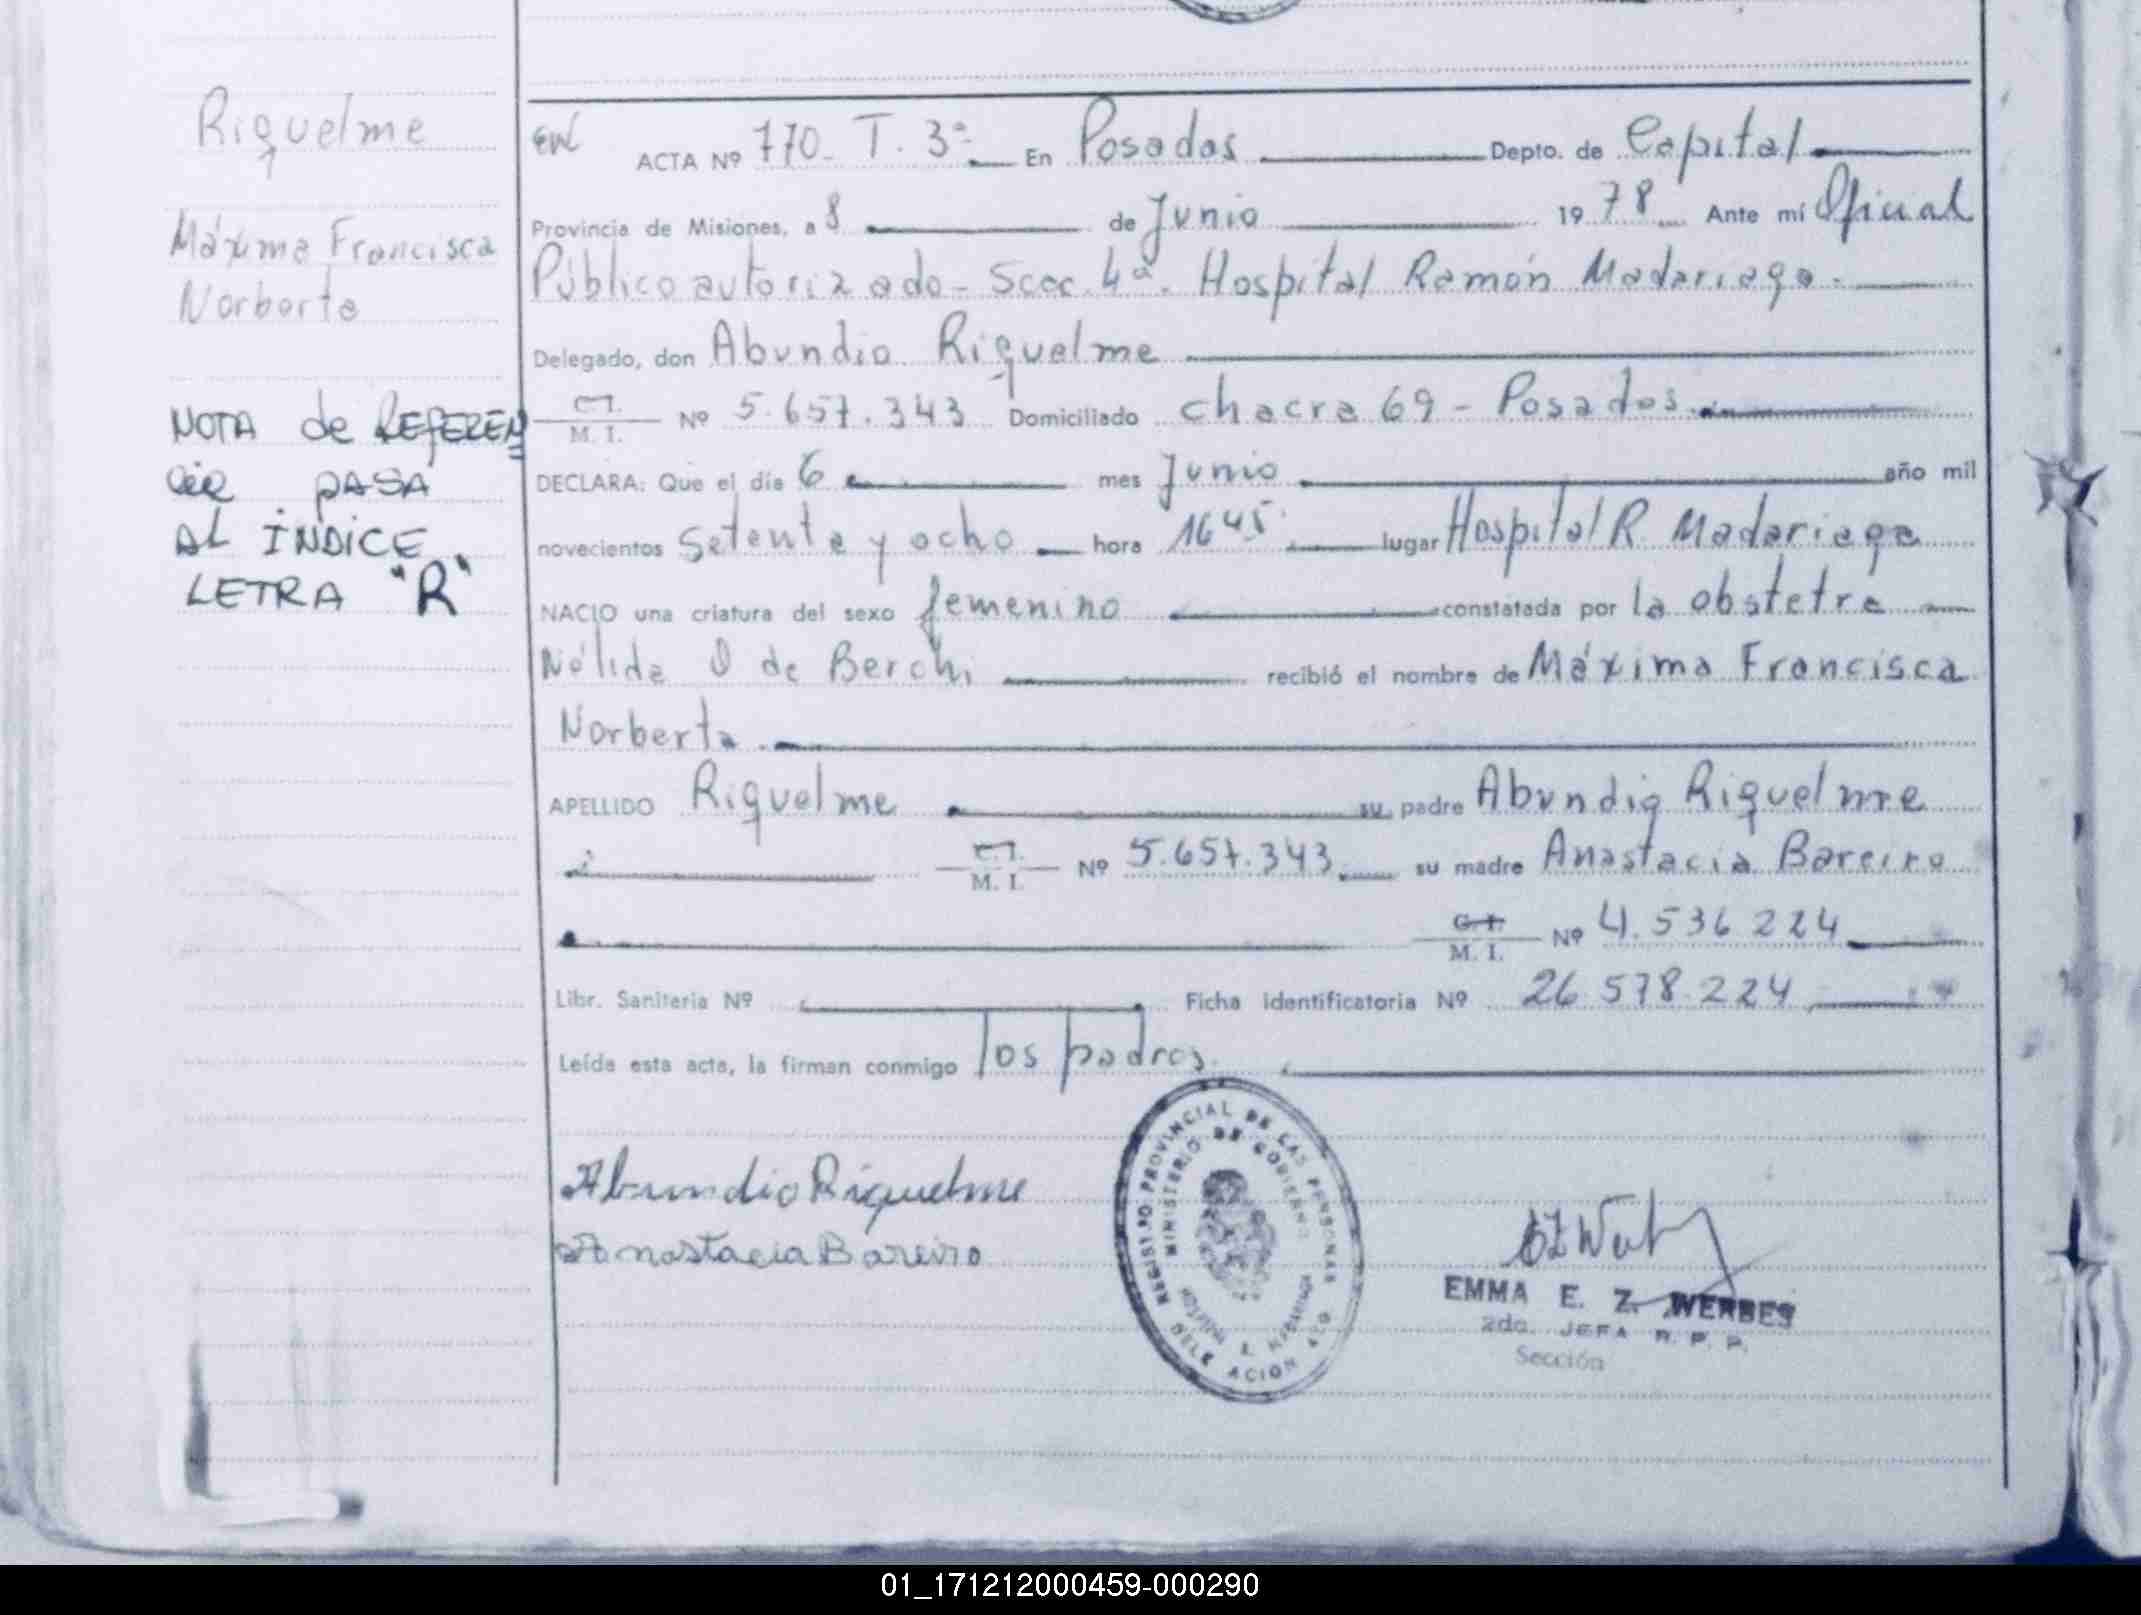 Riquelme
Máxima Francisca
Norberta
NOTA de REFEREN
CIA PASA
AL ÍNDICE
LETRA "R"
ACTA Nº 770. T. 3º En Posadas Depto. de Capital
Provincia de Misiones, a 8 de Junio 1978 Ante mí Oficial
Público autorizado - Secc. 4ª. Hospital Ramón Madariaga.
Delegado, don Abundio Riquelme
C.I.
M. I. Nº 5.657.343 Domiciliado chacra 69 - Posados
DECLARA: Que el día 6 mes Junio año mil
novecientos setenta y ocho hora 1645 lugar Hospital R. Madariaga
NACIO una criatura del sexo femenino constatada por la obstetra
Nélida O de Berchi recibió el nombre de Máxima Francisca
Norberta
APELLIDO Riquelme su padre Abundio Riquelme
C.I.
M. I. Nº 5.657.343 su madre Anastacia Bareiro
C.I.
M. I. Nº 4.536.224
Libr. Sanitaria Nº Ficha identificatoria Nº 26 578.224
Leída esta acta, la firman conmigo los padres.
Abundio Riquelme
Anastacia Bareiro
REGISTRO PROVINCIAL DE LAS PERSONAS
MINISTERIO DE GOBIERNO
HOSPITAL R. MADARIAGA
DELEGACION 420
EMMA E. Z. WERBES
2da. JEFA R. P. P.
Sección
01_171212000459-000290